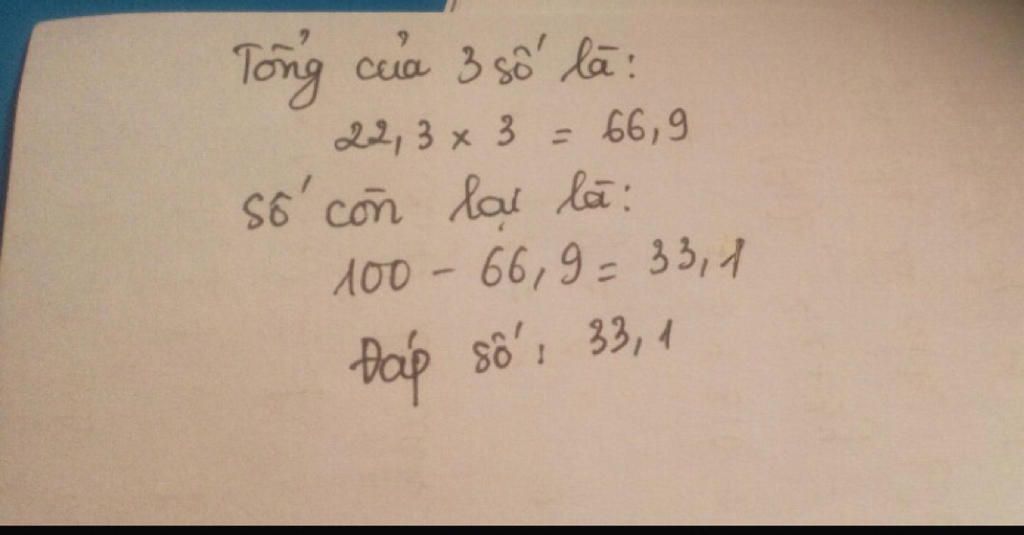 Tổng của 3 số là:
22,3 x 3 = 66,9
số còn lại là:
100 - 66,9 = 33,1
Đáp số: 33,1